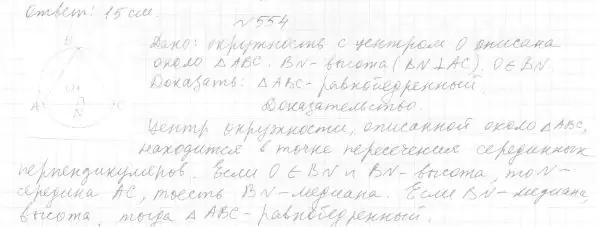 Ответ: 15 см.
№ 554
Дано: окружность с центром O описана
около △ABC. BN - высота (BN⊥AC), O∈BN.
Доказать: △ABC - равнобедренный.
Доказательство.
Центр окружности, описанной около △ABC,
находится в точке пересечения серединных
перпендикуляров. Если O∈BN и BN - высота, то N -
середина AC, тоесть BN - медиана. Если BN - медиана,
высота, тогда △ABC - равнобедренный.
B
O
A
N
C